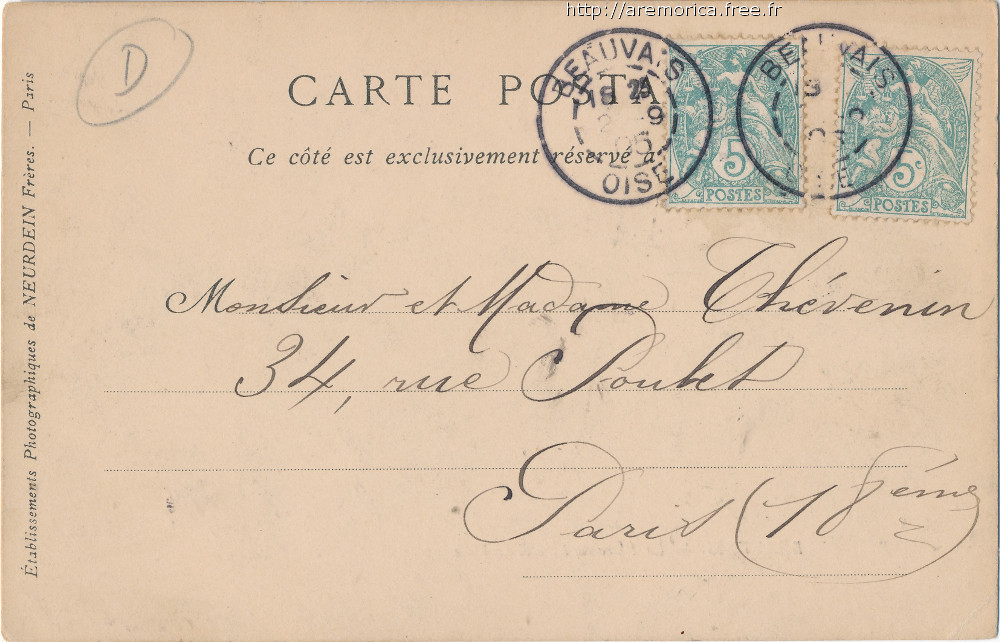 http://aremorica.free.fr
D
CARTE POSTA
Ce côté est exclusivement réservé à
BEAUVAIS
OISE
BEAUVAIS
5c
POSTES
5c
POSTES
Monsieur et Madame Thévenin
34, rue Poulet
Paris (18ème)
Établissements Photographiques de NEURDEIN Frères. — Paris